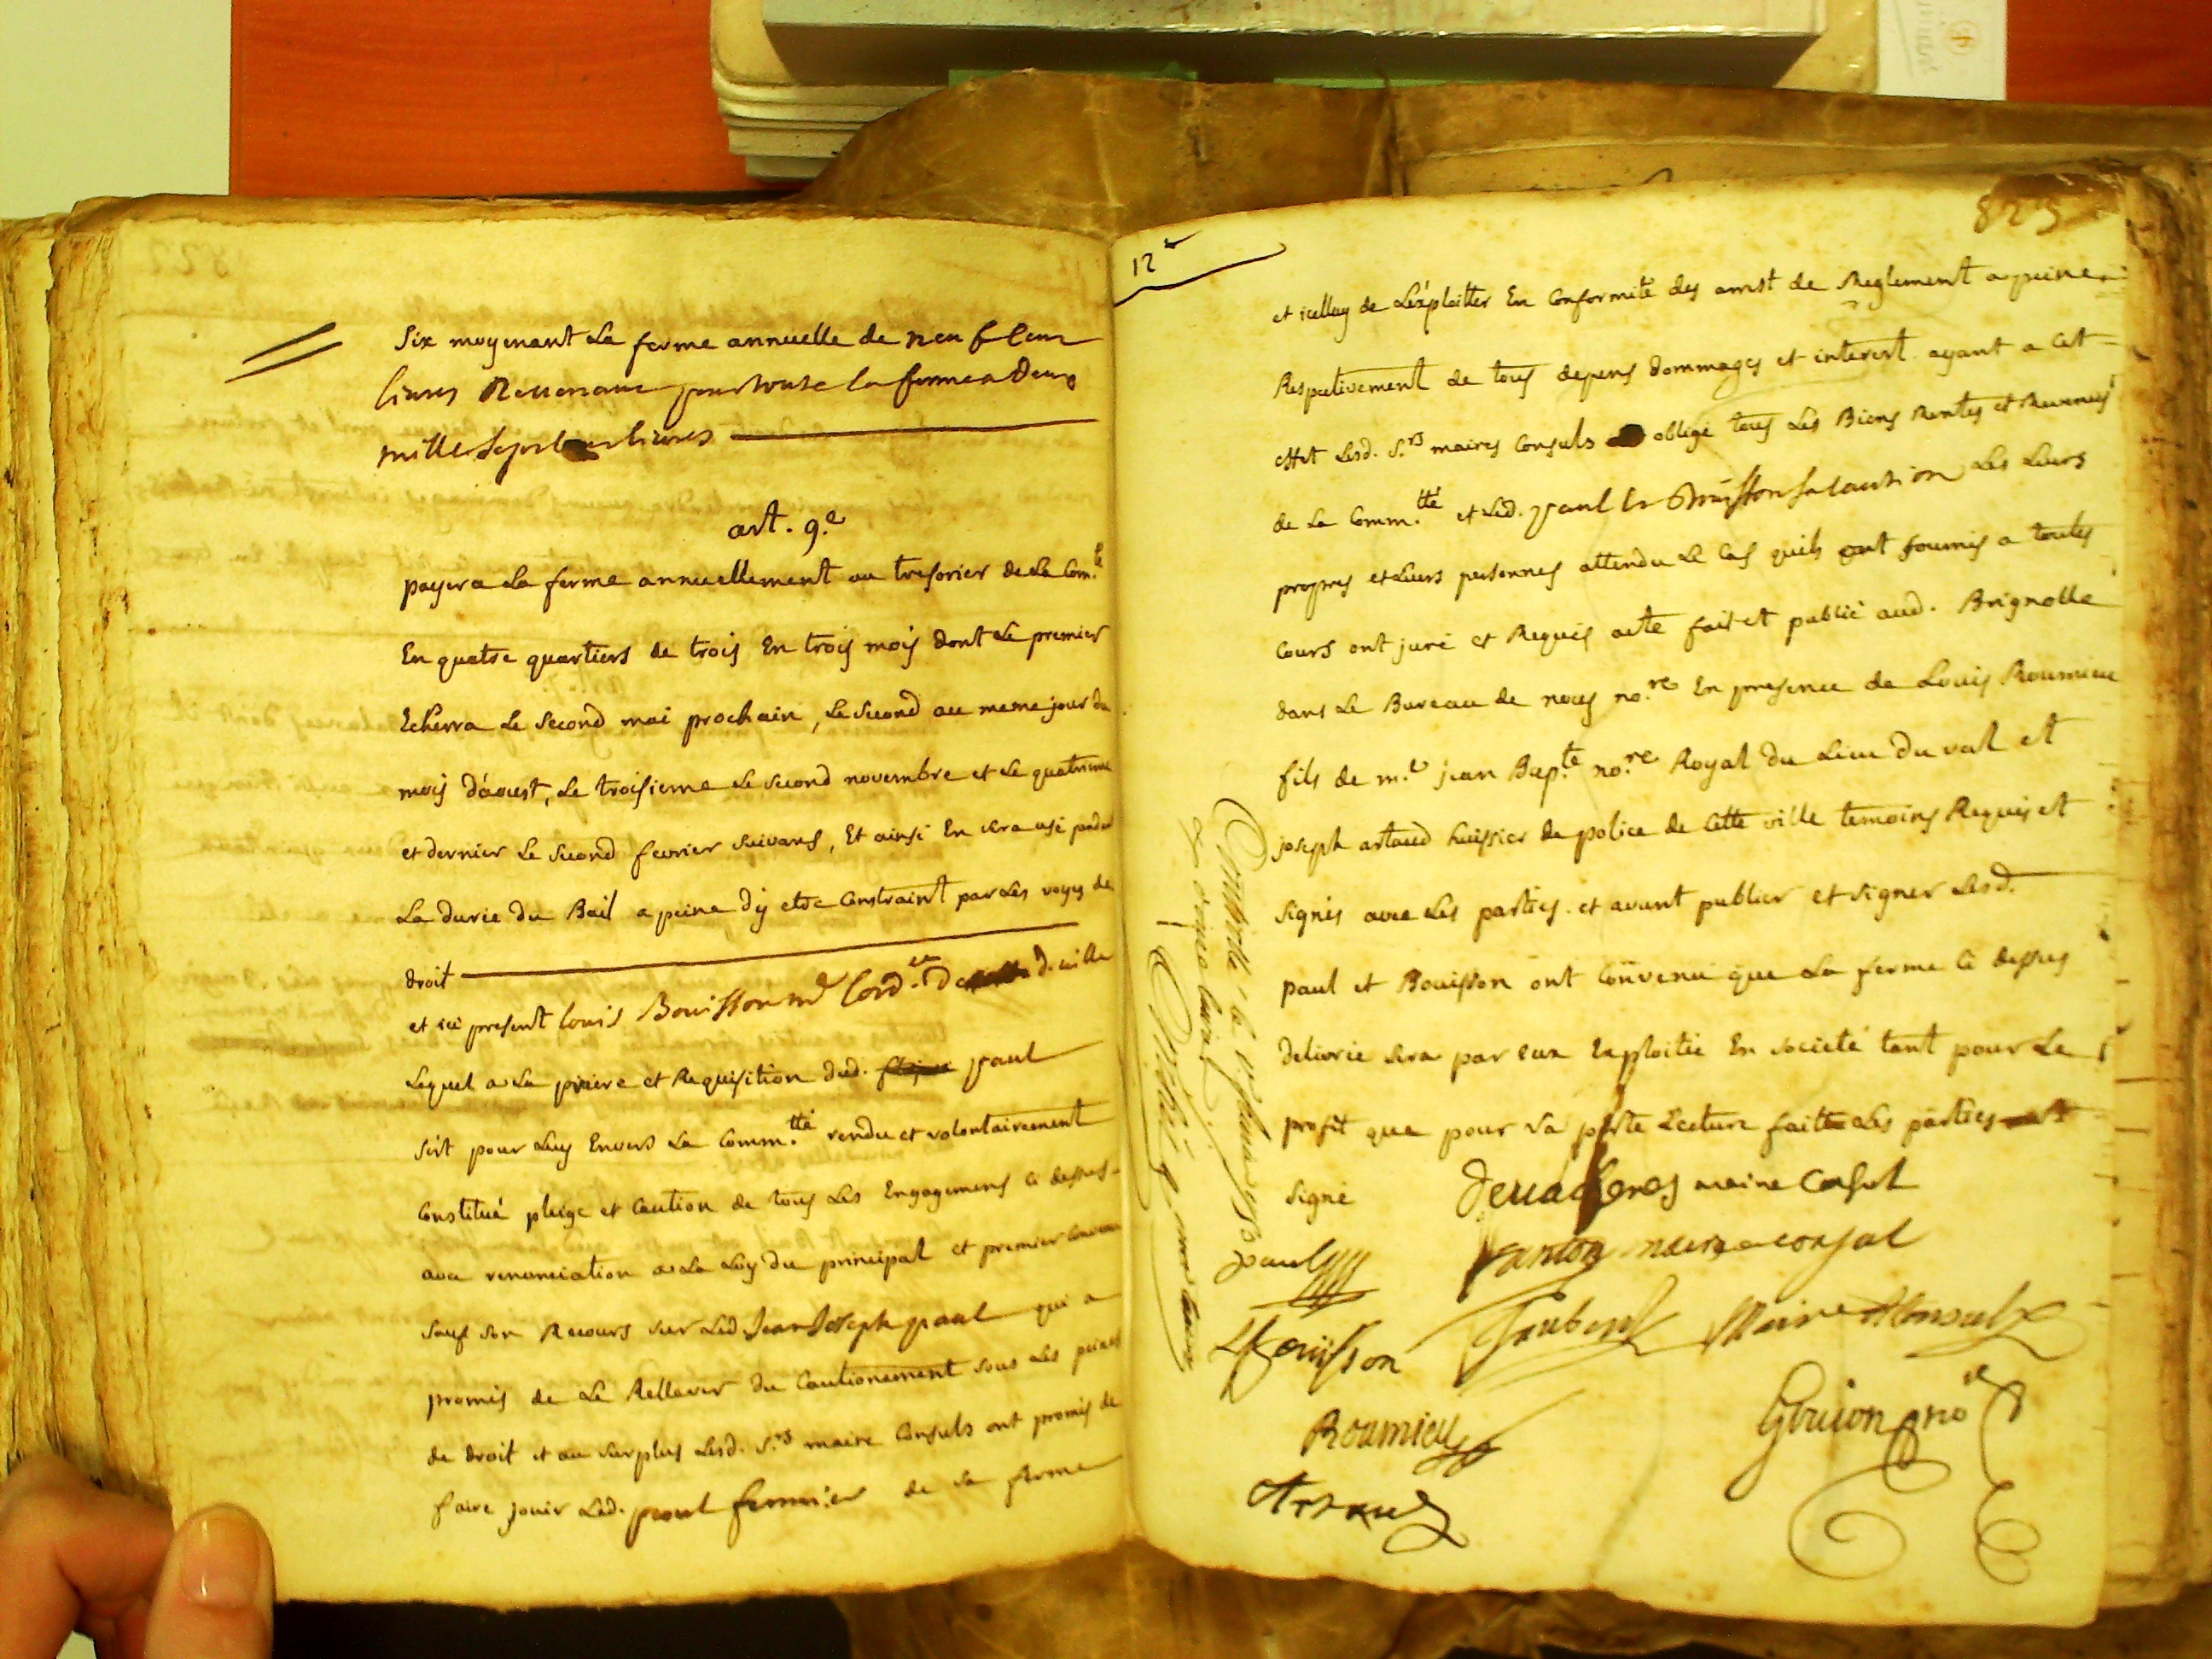 Six moyenant La ferme annuelle de neuf Cens
livres Revenant pour toute la ferme a Deux
mille sept Cens livres
art. 9.e
payera La ferme annuellement au tresorier de La Com.té
En quatre quartiers de trois En trois mois dont Le premier
Echerra Le second mai prochain, Le second au meme jour du
mois d'aoust, Le troisieme Le second novembre et Le quatrieme
et dernier Le second fevrier suivant, Et ainsi En sera usé pendant
La durée du Bail a peine d'y etre Constraint par Les voyes de
droit
et ici present louis Bouisson m.d Cord.er d. ville
Lequel a La priere et Requisition dud. paul
s'est pour Luy Envers La Comm.tté rendu et volontairement
Constitué pleige et Caution de tous Les Engagemens ci dessus
avec renonciation a La Loy du principal et premier
sauf son Recours sur Led. Jean Joseph paul qui a
promis de Le Rellever du Cautionnement sous Les peines
de droit et au surplus Lesd. S.rs maire Consuls ont promis de
faire jouir Led. paul fermier de La ferme
12
825
et icelluy de L'exploitter En Conformité des arrest de Reglement a peine
Respectivement de tous depens dommages et interest ayant a cet
effet Lesd. S.rs maires Consuls obligé tous Les Biens Rentes et Revenus
de La Comm.tté et Led. paul et Bouisson sa Caution Les Leurs
propres et Leurs personnes attendu Le Cas quils ont soumis a toutes
Cours ont juré et Requis acte fait et publié aud. Brignolle
dans Le Bureau de nous no.re En presence de Louis Roumieu
fils de m.e jean Bap.te no.re Royal du Lieu du val et
joseph artaud huissier de police de Cette ville temoins Requis et
signés avec Les parties. et avant publier et signer Lesd.
paul et Bouisson ont Convenu que La ferme Ci dessus
delivrée sera par eux Exploitée En societé tant pour Le
profit que pour La perte Lecture faitte Les parties ont
signé
maire Consul
maire consul
paul
LBouisson
Jaubert Maire Consul
Roumieu
Artaud
Goujon no.re